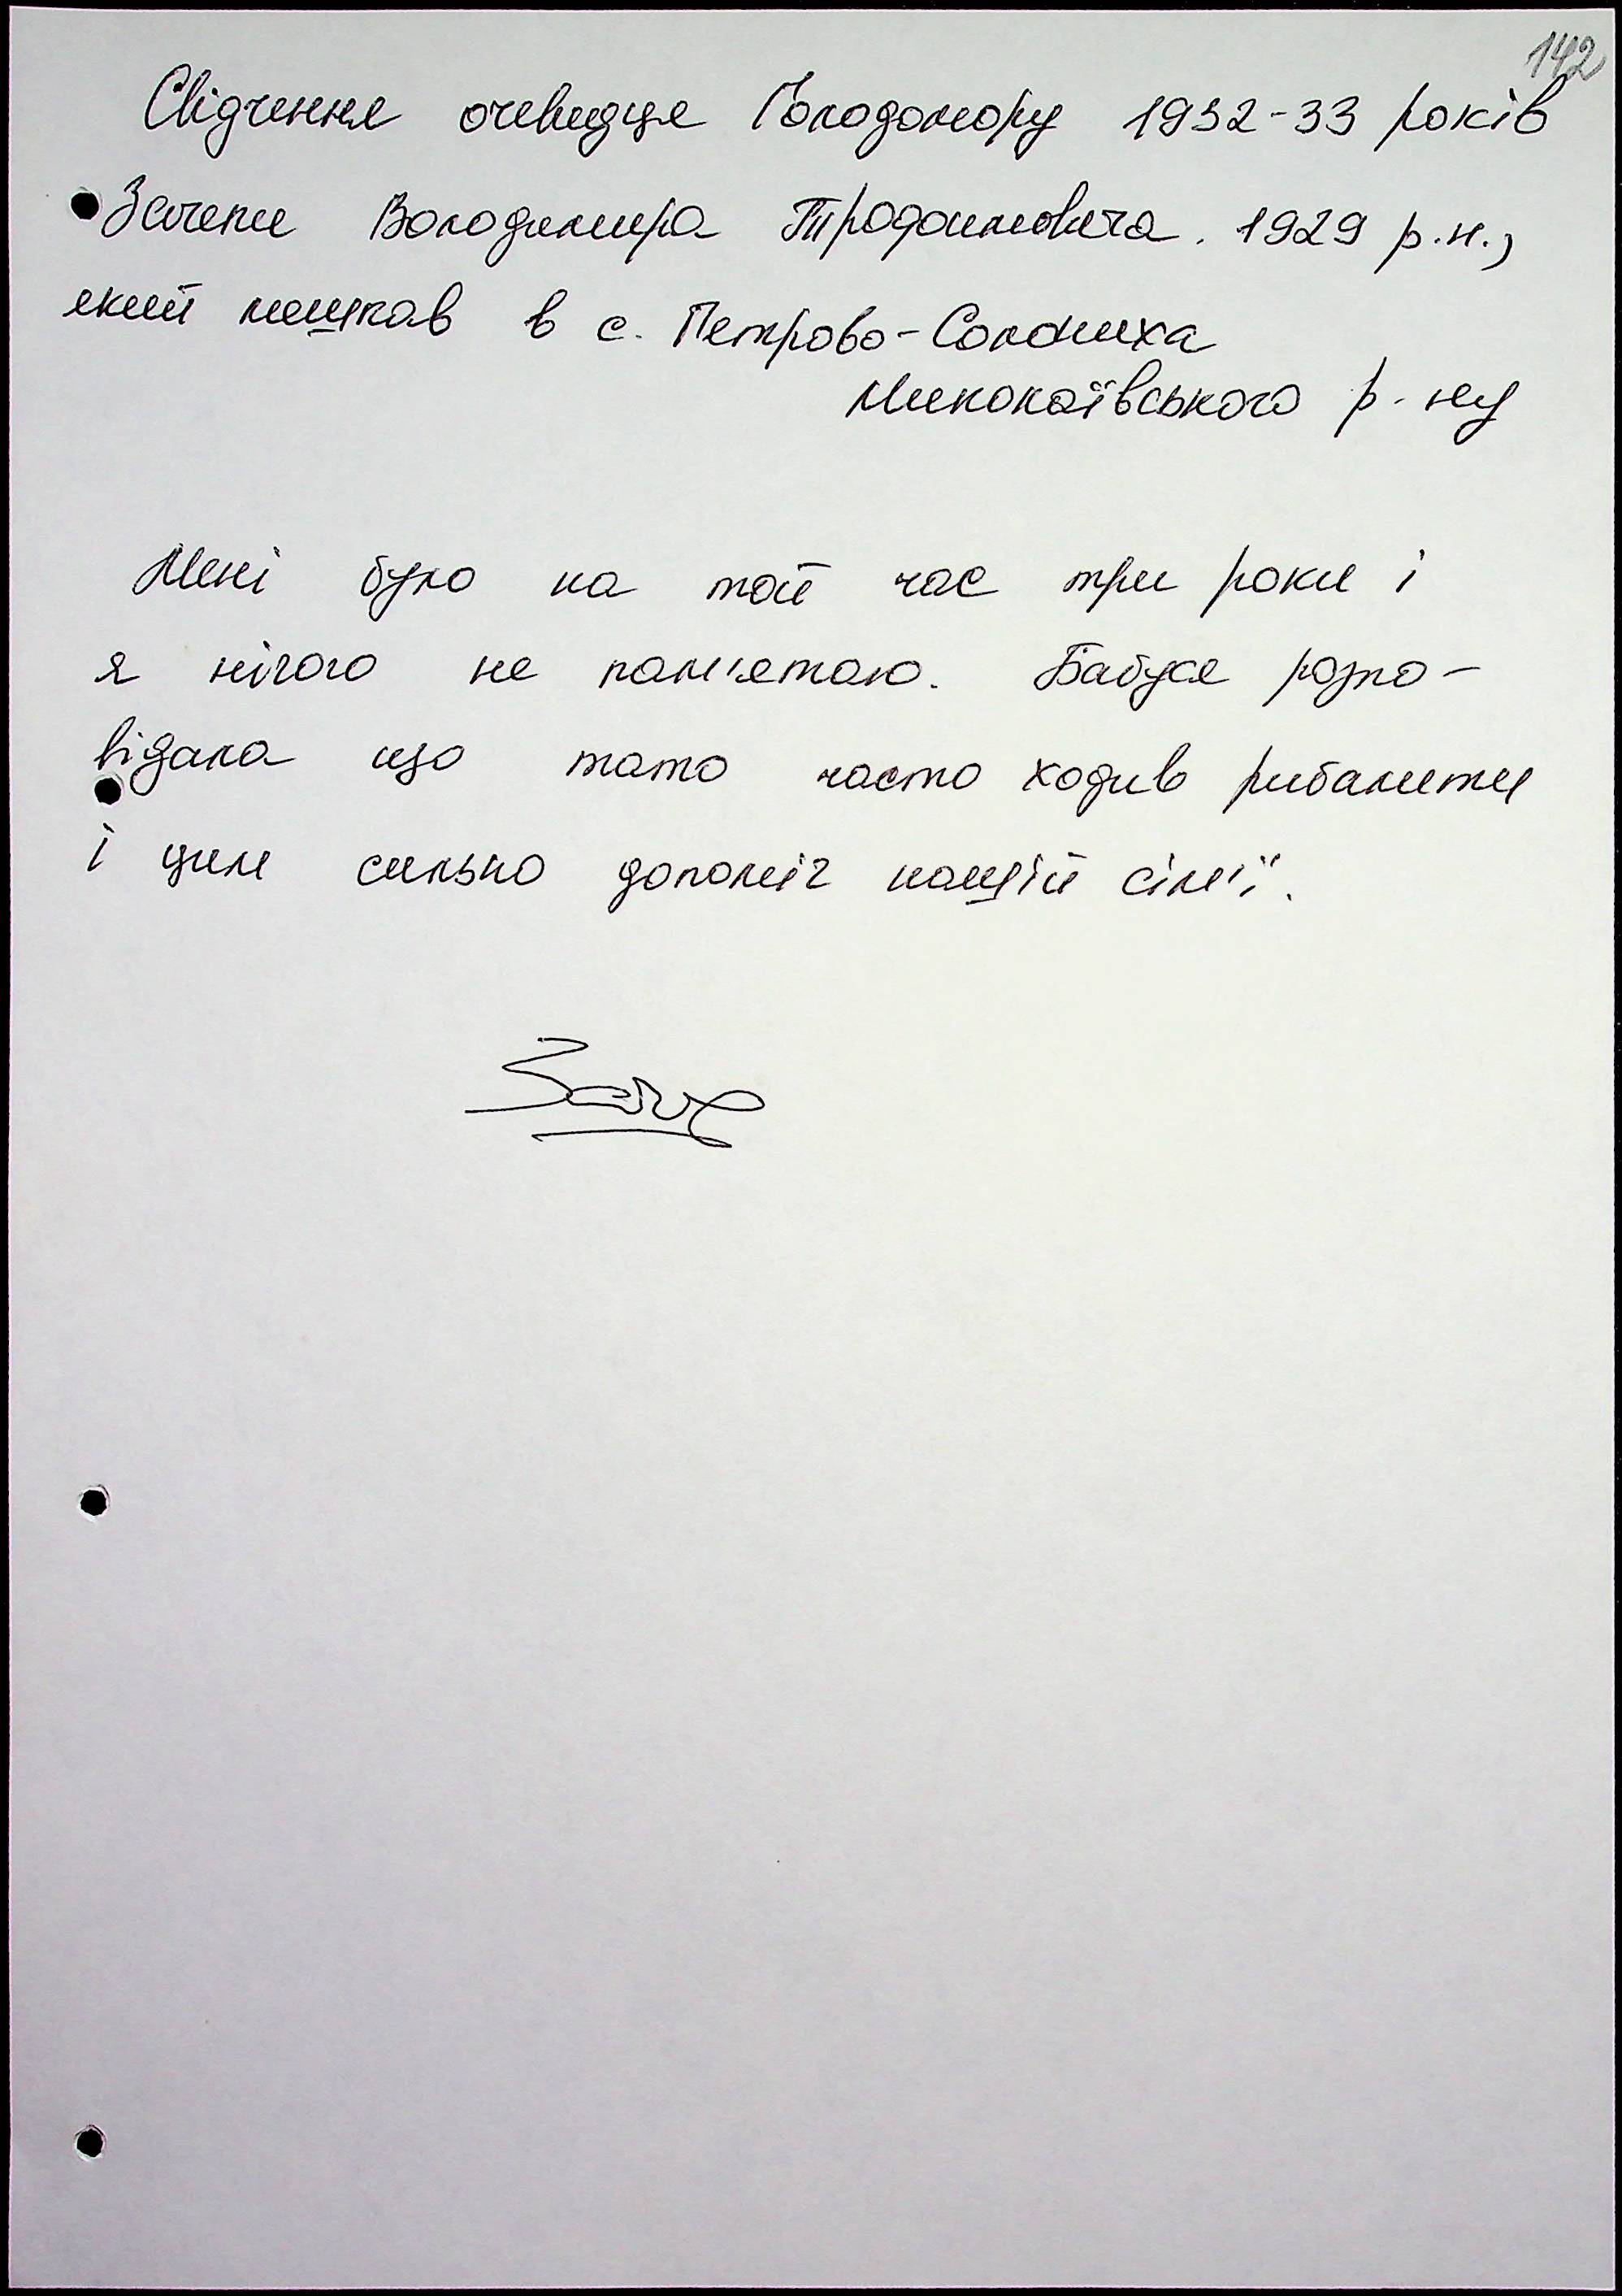 142
Свідчення очевидця Голодомору 1932-33 років
Зачепи Володимира Трофимовича. 1929 р.н.,
який мешкав в с. Петрово-Солониха
Миколаївського р-ну
Мені було на той час три роки і
я нічого не пам'ятаю. Бабуся розпо-
відала що тато часто ходив рибалити
і цим сильно допоміг нашій сім'ї.